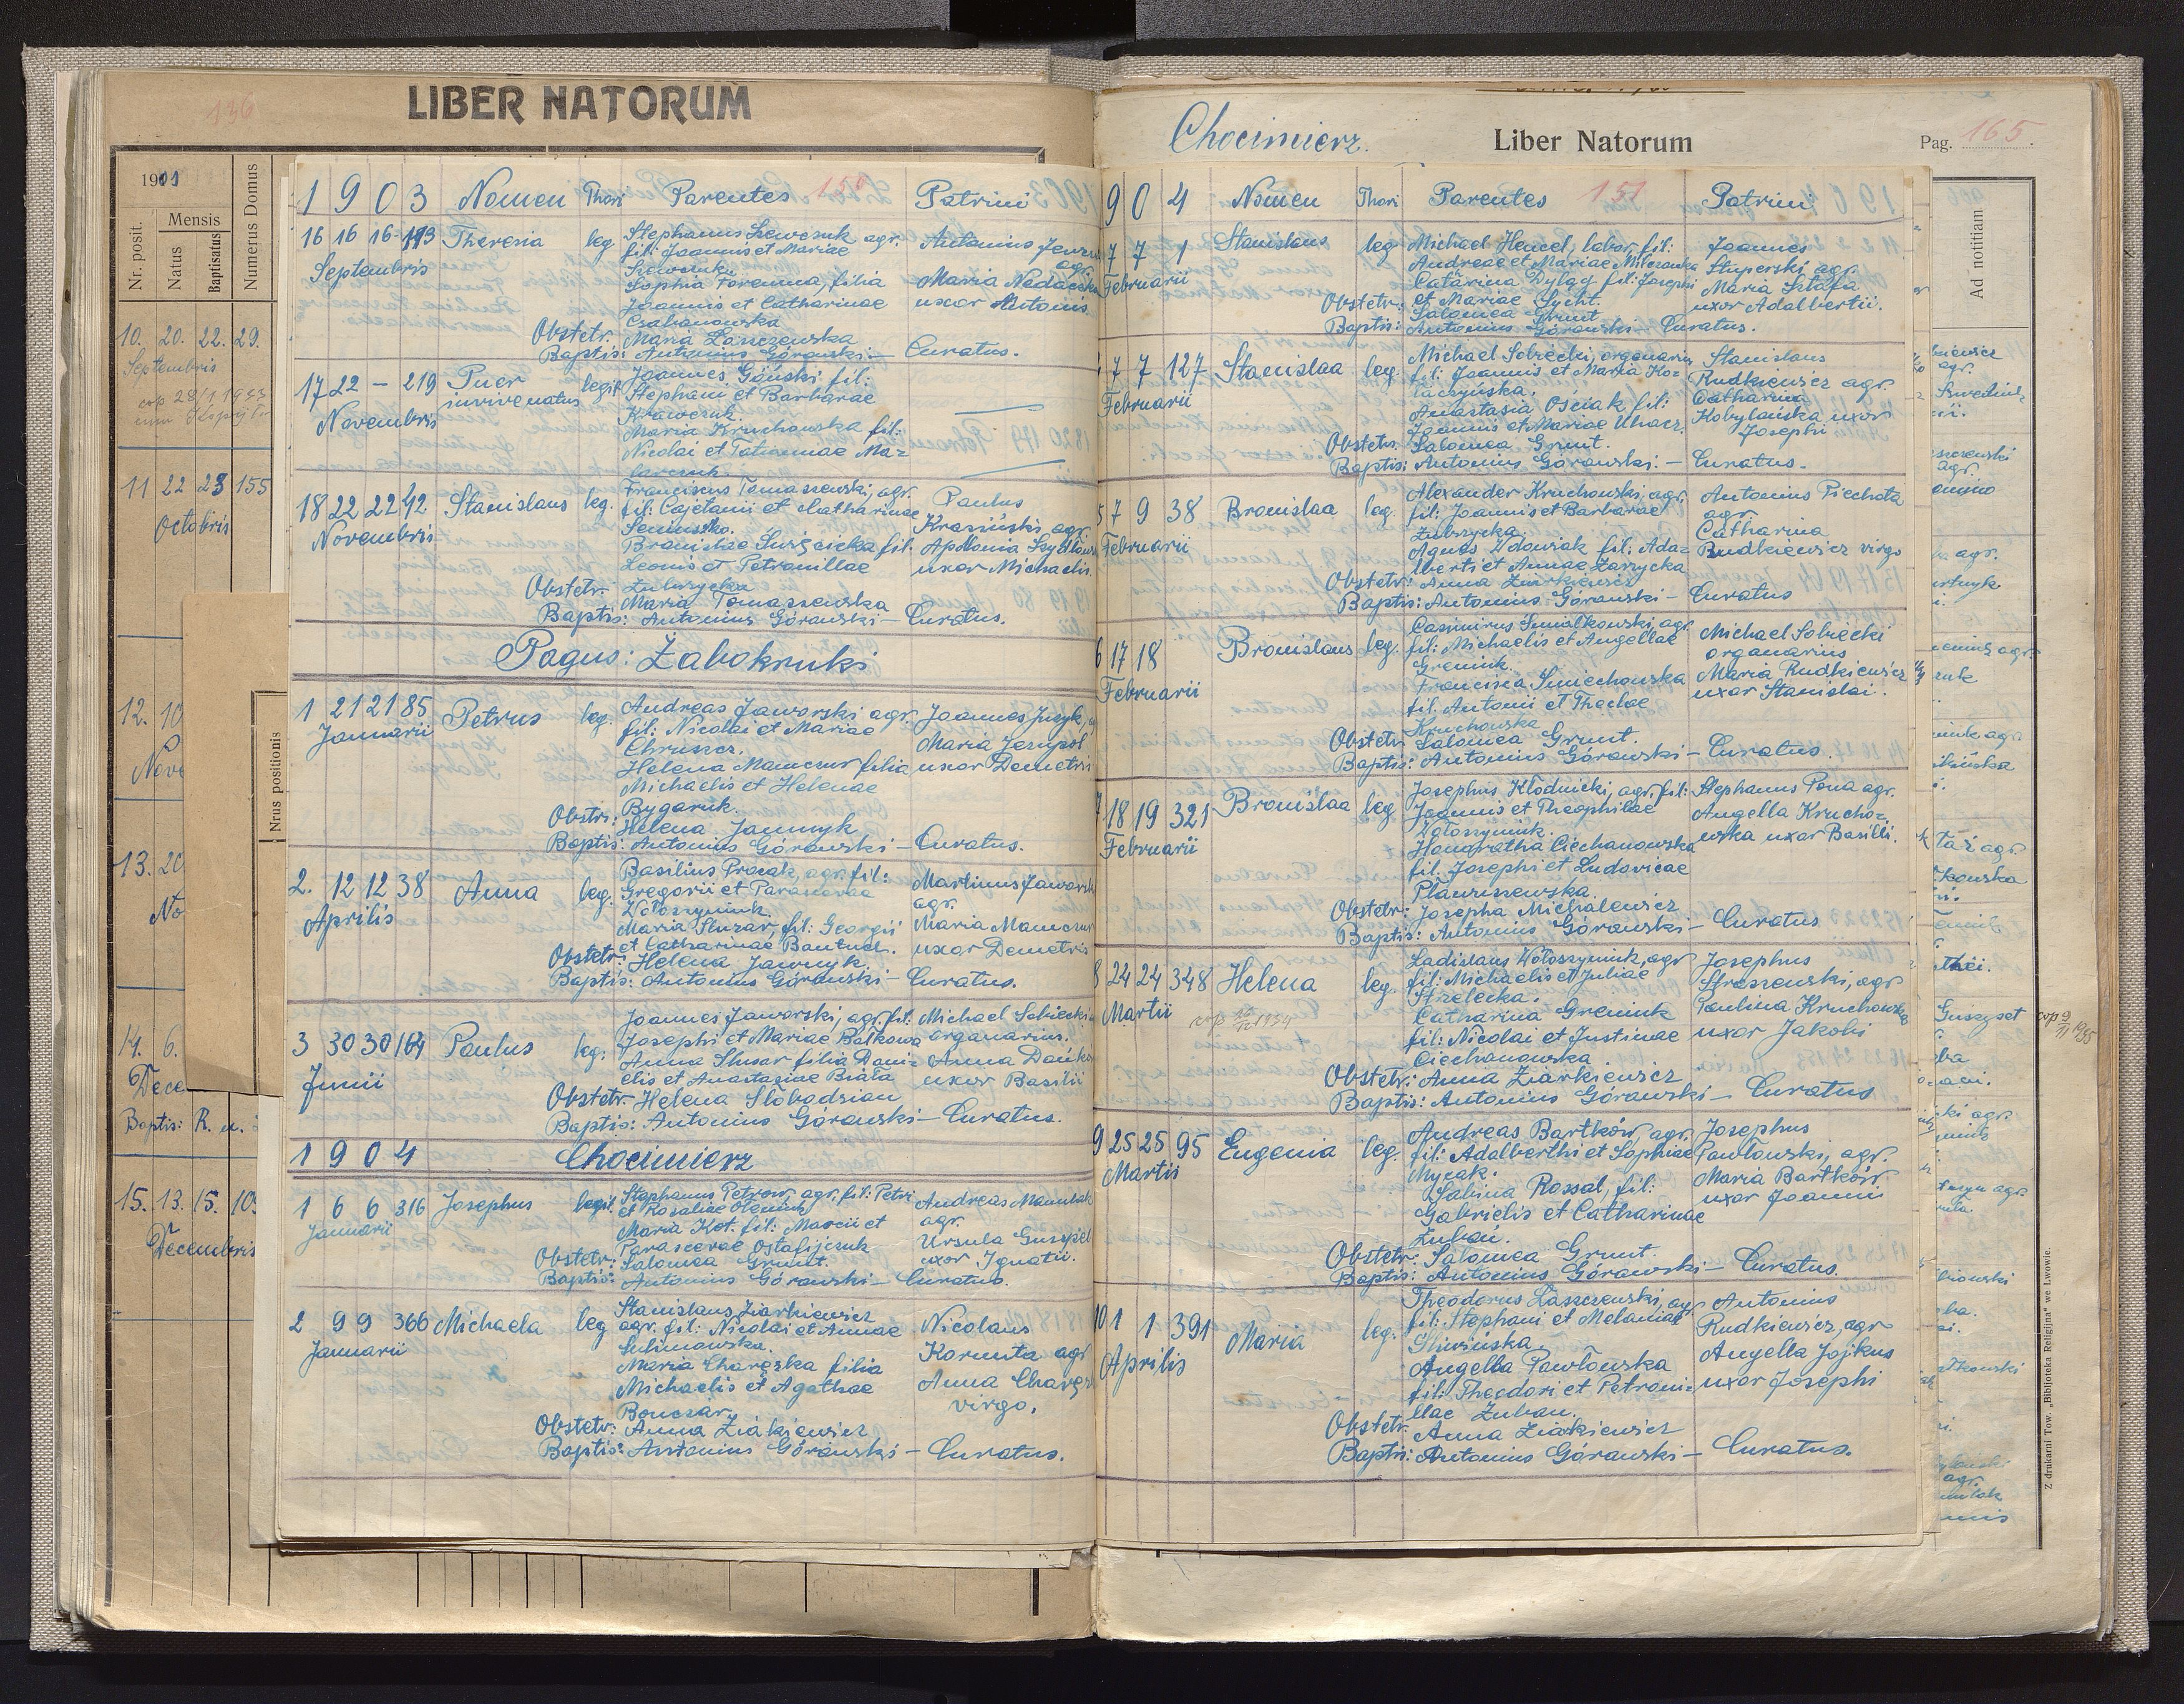 136
LIBER NATORUM
1901
Nr. posit.
Mensis
Natus
Baptisatus
Numerus Domus
10. 20. 22. 29.
Septembris
11 22 23 155
Octobris
12. 10
Nove
13. 20
No
14. 6.
Dece
Baptis: R.
15. 13. 15. 10
Decembris
Nrus positionis
1903 Nomen Thori Parentes 150 Patrini
16 16 16 113 Theresia leg. Stephanus Szewczuk agr. Antonius
Septembris fil: Joannis et Mariae agr.
Szewczuk.
Sophia Foremna, filia Maria
Joannis et Catharinae uxor Antonis.
Czabanowska
Obstetr: Maria Laszczewska
Baptis: Antonius Górawski — Curatus.
17 22 – 219 Puer legit. Joannes Góński fil:
Novembris invive natus Stephani et Barbarae
Krawczuk
Maria Kruchowska fil:
Nicolai et Tatiannae Ma=
larczuk
18 22 22 42 Stanislaus leg. Franciscus Tomaszewski, agr. Paulus
Novembris fil: Cajetani et Catharinae Krasiński agr.
Bronislae fil: Apollonia
Leonis et Petronillae uxor Michaelis.
Zubrzycka
Obstetr: Maria Tomaszewska
Baptis: Antonius Górawski — Curatus.
Pagus: Żabokruki
1 21 21 85 Petrus leg. Andreas Jaworski agr. Joannes Juzyk,
Januarii fil: Nicolai et Mariae Maria Jezupol
Chruszcz. uxor Demetrii
Helena Mamczur filia
Michaelis et Helenae
Bygaruk.
Obstr: Helena Jammyk
Baptis: Antonius Górawski — Curatus.
2. 12 12 38 Anna leg. Basilius Procak, agr. fil: Martinus Jaworski
Aprilis Gregorii et Paraxevae agr.
Wołoszyniuk. Maria Mamczur
Maria Sluzar, fil: Georgii uxor Demetrii
et Catharinae
Obstetr: Helena Jammyk
Baptis: Antonius Górawski — Curatus.
3 30 30 164 Paulus leg: Joannes Jaworski, agr. fil: Michael Sobiecki
Junii Josephi et Mariae Bałkowa organarius.
Anna Slusar filia Dani= Anna
elis et Anastasiae Biała uxor Basilii
Obstetr: Helena Słobodzian
Baptis: Antonius Górawski — Curatus.
1904 Chocimierz
1 6 6 316 Josephus legit. Stephanus Petrow, agr. fil: Petri Andreas
Januarii et Rosaliae agr.
Maria Kot. fil: Marcii et Ursula
Parascevae Ostafijczuk uxor Ignatii.
Obstetr: Salomea Grunt.
Baptis: Antonius Górawski — Curatus.
2 9 9 366 Michaela leg Stanislaus Ziarkiewicz Nicolaus
Januarii agr. fil: Nicolai et Annae Kormita agr
Sulimowska. Anna
Maria filia virgo.
Michaelis et Agathae
Bonczar
Obstetr: Anna Ziakiewicz
Baptis: Antonius Górawski — Curatus.
Chocimierz. Liber Natorum Pag. 165.
904 Nomen Thori Parentes 151 Patrini
7 7 1 Stanislaus leg Michael Hencel, labor, fil: Joannes
Februarii Andreae et Mariae Milczanka Stuperski agr.
Catarina Dyląg fil: Josephi Maria Sztafa
et Mariae Sycht. uxor Adalbertii.
Obstetr: Salomea Grunt
Baptis: Antonius Górawski — Curatus.
7 7 127 Stanislaa leg. Michael Sobiecki, organarius Stanislaus
Februarii fil: Joannis et Maria Ko= Rudkiewicz agr.
laczyńska. Catharina
Anastasia Ościak fil: Kobylańska uxor
Joannis et Mariae Josephi
Obstetr: Salomea Grunt.
Baptis: Antonius Górawski. — Curatus.
5 7 9 38 Bronislaa leg. Alexander Kruchowski, agr. Antonius Piechota
Februarii fil: Joannis et Barbarae agr.
Zubrzycka. Catharina
Agnes Wdowiak fil: Ada= Rudkiewicz virgo
lberti et Annae Zarzycka
Obstetr: Anna Ziarkiewicz
Baptis: Antonius Górawski — Curatus
6 17 18 Bronislaus leg. Casimirus Smiałkowski, agr. Michael Sobiecki
Februarii fil: Michaelis et Angellae organarius
Greniuk. Maria Rudkiewicz
Francisca Smiechowska uxor Stanislai.
fil: Antonii et Theclae
Kruchowska
Obstetr: Salomea Grunt.
Baptis: Antonius Górawski — Curatus.
7 18 19 321 Bronislaa leg. Josephus Kłodnicki, agr. fil: Stephanus Pona agr.
Februarii Joannis et Theophilae Angella Krucho=
Wołoszyniuk. wska uxor Basilii.
Honoratha Ciechanowska
fil. Josephi et Ludovicae
Plawuszewska
Obstetr: Josepha Michalewicz
Baptis: Antonius Górawski — Curatus
8 24 24 348 Helena leg. Ladislaus Wołoszyniuk, agr Josephus
Martii fil: Michaelis et Juliae Straszewski, agr
Strzelecka. Paulina Kruchowska
Catharina Greniuk uxor Jakobi
fil: Nicolai et Justinae
Ciechanowska
Obstetr: Anna Ziarkiewicz
Baptis: Antonius Górawski — Curatus
9 25 25 95 Eugenia leg. Andreas Bartków, agr. Josephus
Martii fil: Adalberthi et Sophiae Pawłowski, agr.
Mycak. Maria Bartków
Sabina Rossal, fil: uxor Joannii
Gabrielis et Catharinae
Zubań.
Obstetr: Salomea Grunt.
Baptis: Antonius Górawski — Curatus.
10 1 1 391 Maria leg. Theodorus Laszczewski, agr Antonius
Aprilis fil: Stephani et Melaniae Rudkiewicz, agr
Śliwińska Angella Jojkus
Angella Pawłowska uxor Josephi
fil: Theodori et Petroni=
llae Zuban.
Obstetr: Anna Ziakiewicz
Baptis: Antonius Górawski — Curatus.
Ad notitiam
Z drukarni Tow. „Bibljoteka Religijna" we Lwowie.